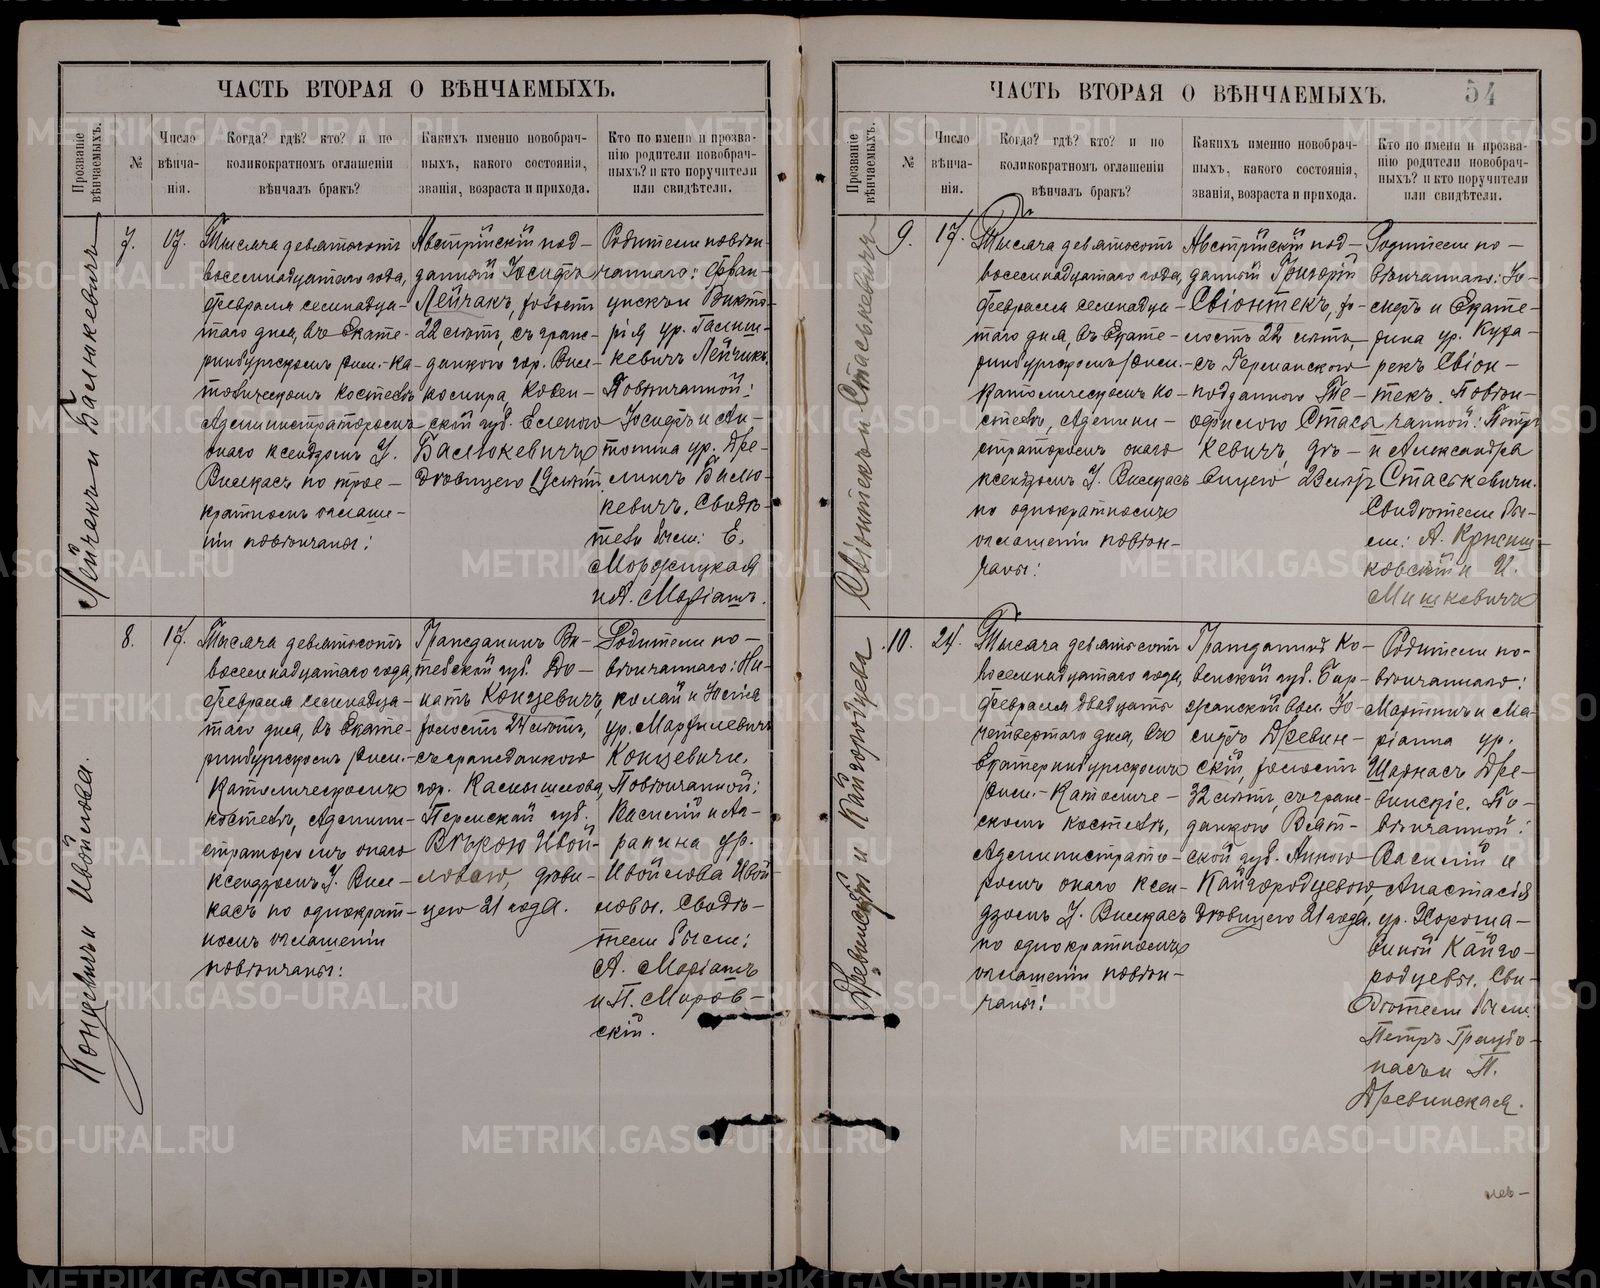 ЧАСТЬ ВТОРАЯ О ВѢНЧАЕМЫХЪ.
Прозваніе вѣнчаемыхъ.
№
Число вѣнча-нія.
Когда? гдѣ? кто? и по
коликократномъ оглашеніи
вѣнчалъ бракъ?
Какихъ именно новобрач-
ныхъ, какого состоянія,
званія, возраста и прихода.
Кто по имени и прозва-
нію родители новобрач-
ныхъ? и кто поручители
или свидѣтели.
Лейчакъ и Балюкевичъ
7.
17.
Тысяча девятьсотъ
восемнадцатаго года,
февраля семнадца-
таго дня, въ Екате-
ринбургскомъ рим.-ка-
толическомъ костелѣ
Администраторомъ
онаго ксендзомъ У.
Вилкасъ по трое-
кратномъ оглаше-
ніи повѣнчаны:
Австрійскій под-
данный Іосифъ
Лейчакъ, холостъ
22 лѣтъ, съ граж-
данкою гор. Вил-
комира, Ковен-
ской губ. Еленою
Балюкевичъ
дѣвицею 19 лѣтъ.
Родители повѣн-
чаннаго: Фран-
цискъ и Викто-
рія ур.
кевичъ Лейчакъ.
Повѣнчанной:
Іосифъ и Ан-
тонина ур. Дре-
лингъ Балю-
кевичъ. Свидѣ-
тели были: Е.
и А. Маріашъ.
Концевичъ и Ивойлова.
8.
17.
Тысяча девятьсотъ
восемнадцатаго года,
февраля семнадца-
таго дня, въ Екате-
ринбургскомъ рим.-
католическомъ
костелѣ, Админи-
страторомъ онаго
ксендзомъ У. Вил-
касъ по однократ-
номъ оглашеніи
повѣнчаны:
Гражданинъ Ви-
тебской губ. До-
натъ Концевичъ,
холостъ 24 лѣтъ,
съ гражданкою
гор. Камышлова,
Пермской губ.
Вѣрою Ивой-
ловою, дѣви-
цею 21 года.
Родители по-
вѣнчаннаго: Ни-
колай и Юлія
ур. Марфилевичъ
Концевичи.
Повѣнчанной:
Василій и Аг-
рапина ур.
Ивойлова Ивой-
ловы. Свидѣ-
тели были:
А. Маріашъ
и П. Миров-
скій.
ЧАСТЬ ВТОРАЯ О ВѢНЧАЕМЫХЪ.
54
Прозваніе вѣнчаемыхъ.
№
Число вѣнча-нія.
Когда? гдѣ? кто? и по
коликократномъ оглашеніи
вѣнчалъ бракъ?
Какихъ именно новобрач-
ныхъ, какого состоянія,
званія, возраста и прихода.
Кто по имени и прозва-
нію родители новобрач-
ныхъ? и кто поручители
или свидѣтели.
Свіонтекъ и Стаськевичъ
9.
17.
Тысяча девятьсотъ
восемнадцатаго года,
февраля семнадца-
таго дня, въ Екате-
ринбургскомъ рим.-
католическомъ ко-
стелѣ, Админи-
страторомъ онаго
ксендзомъ У. Вилкасъ
по однократномъ
оглашеніи повѣн-
чаны:
Австрійскій под-
данный Григорій
Свіонтекъ, хо-
лостъ 22 лѣтъ,
съ Германскою
подданною Те-
офилою Стась
кевичъ дѣ-
вицею 22 лѣтъ
Родители по-
вѣнчаннаго: Іо-
сифъ и Екате-
рина ур. Куха-
рекъ Свіон-
текъ. Повѣн-
чанной: Петръ
и Александра
Стаськевичи.
Свидѣтели бы-
ли: А.
ковскій и И.
Мишкевичъ
Древинскій и Кайгородцева
10.
24.
Тысяча девятьсотъ
восемнадцатаго года,
февраля двадцать
четвертаго дня, въ
Екатеринбургскомъ
рим.-католиче-
скомъ костелѣ,
Администрато-
ромъ онаго ксен-
дзомъ У. Вилкасъ
по однократномъ
оглашеніи повѣн-
чаны:
Гражданинъ Ко-
венской губ. Бир-
жанской вол. Іо-
сифъ Древин-
скій, холостъ
32 лѣтъ, съ граж-
данкою Вят-
ской губ. Анною
Кайгородцевою,
дѣвицею 21 года.
Родители по-
вѣнчаннаго:
Мартинъ и Ма-
ріанна ур.
Шарнасъ Дре-
винскіе. По-
вѣнчанной:
Василій и
Анастасія
ур. Хороша-
виной Кайго-
родцевы. Сви-
дѣтели были:
Петръ
насъ и П.
Древинская.
METRIKI.GASO-URAL.RU